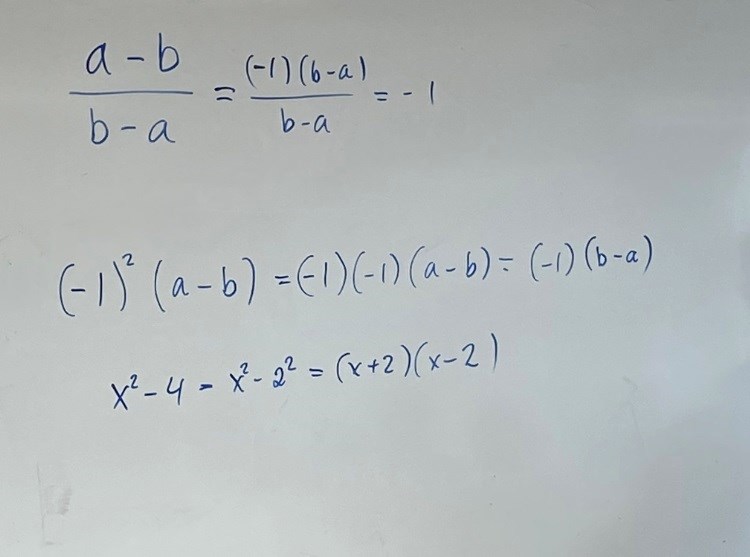 a - b / b - a = (-1)(b-a) / b-a = -1
(-1)² (a - b) = (-1)(-1)(a - b) = (-1)(b-a)
x² - 4 - x² - 2² = (x+2)(x-2)